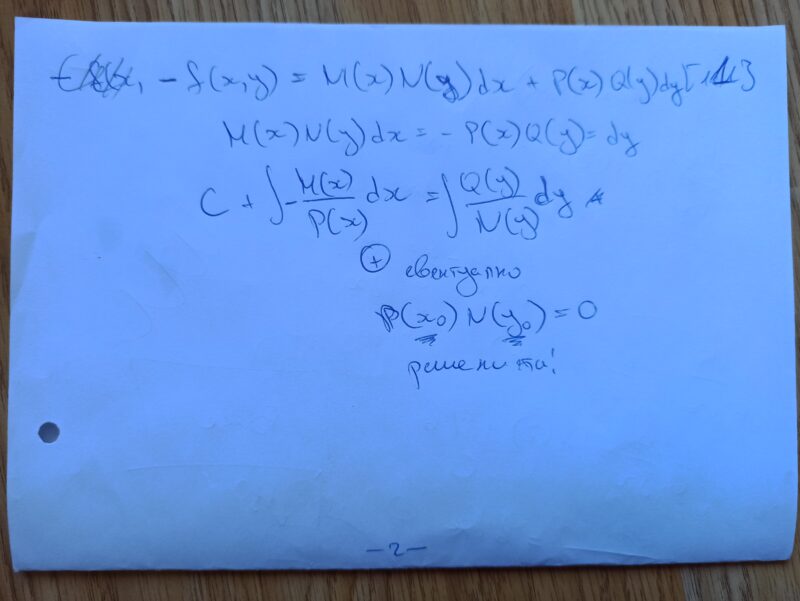 - f(x,y) = M(x)N(y)dx + P(x)Q(y)dy
M(x)N(y)dx = - P(x)Q(y)= dy
C + ∫ - M(x)/P(x) dx = ∫ Q(y)/N(y) dy
⊕ евентуално
P(x₀) N(y₀) = 0
решенията!
- 2 -